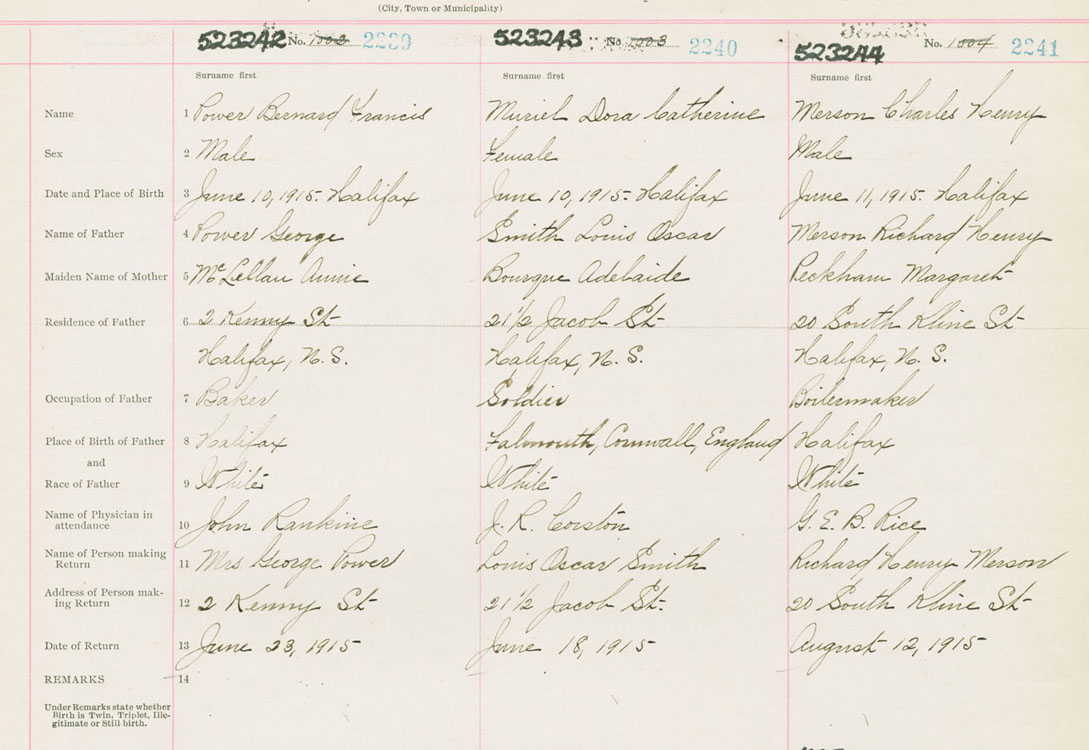 (City, Town or Municipality)
523242 No. 2239 523243 No. 1003 2240 523244 No. 1004 2241
Surname first Surname first Surname first
Name 1 Power Bernard Francis Muriel Dora Catherine Merson Charles Henry
Sex 2 Male Female Male
Date and Place of Birth 3 June 10, 1915. Halifax June 10, 1915. Halifax June 11, 1915. Halifax
Name of Father 4 Power George Smith Louis Oscar Merson Richard Henry
Maiden Name of Mother 5 McLellan Annie Bourque Adelaide Peckham Margaret
Residence of Father 6 2 Kenny St 21 1/2 Jacob St 20 South Kline St
Halifax, N. S. Halifax, N. S. Halifax, N. S.
Occupation of Father 7 Baker Soldier Boilermaker
Place of Birth of Father 8 Halifax Falmouth, Cornwall, England Halifax
and
Race of Father 9 White White White
Name of Physician in
attendance 10 John Rankine J. R. Corston G. E. B. Rice
Name of Person making
Return 11 Mrs George Power Louis Oscar Smith Richard Henry Merson
Address of Person mak-
ing Return 12 2 Kenny St 21 1/2 Jacob St. 20 South Kline St
Date of Return 13 June 23, 1915 June 18, 1915 August 12, 1915
REMARKS 14
Under Remarks state whether
Birth is Twin, Triplet, Ille-
gitimate or Still birth.